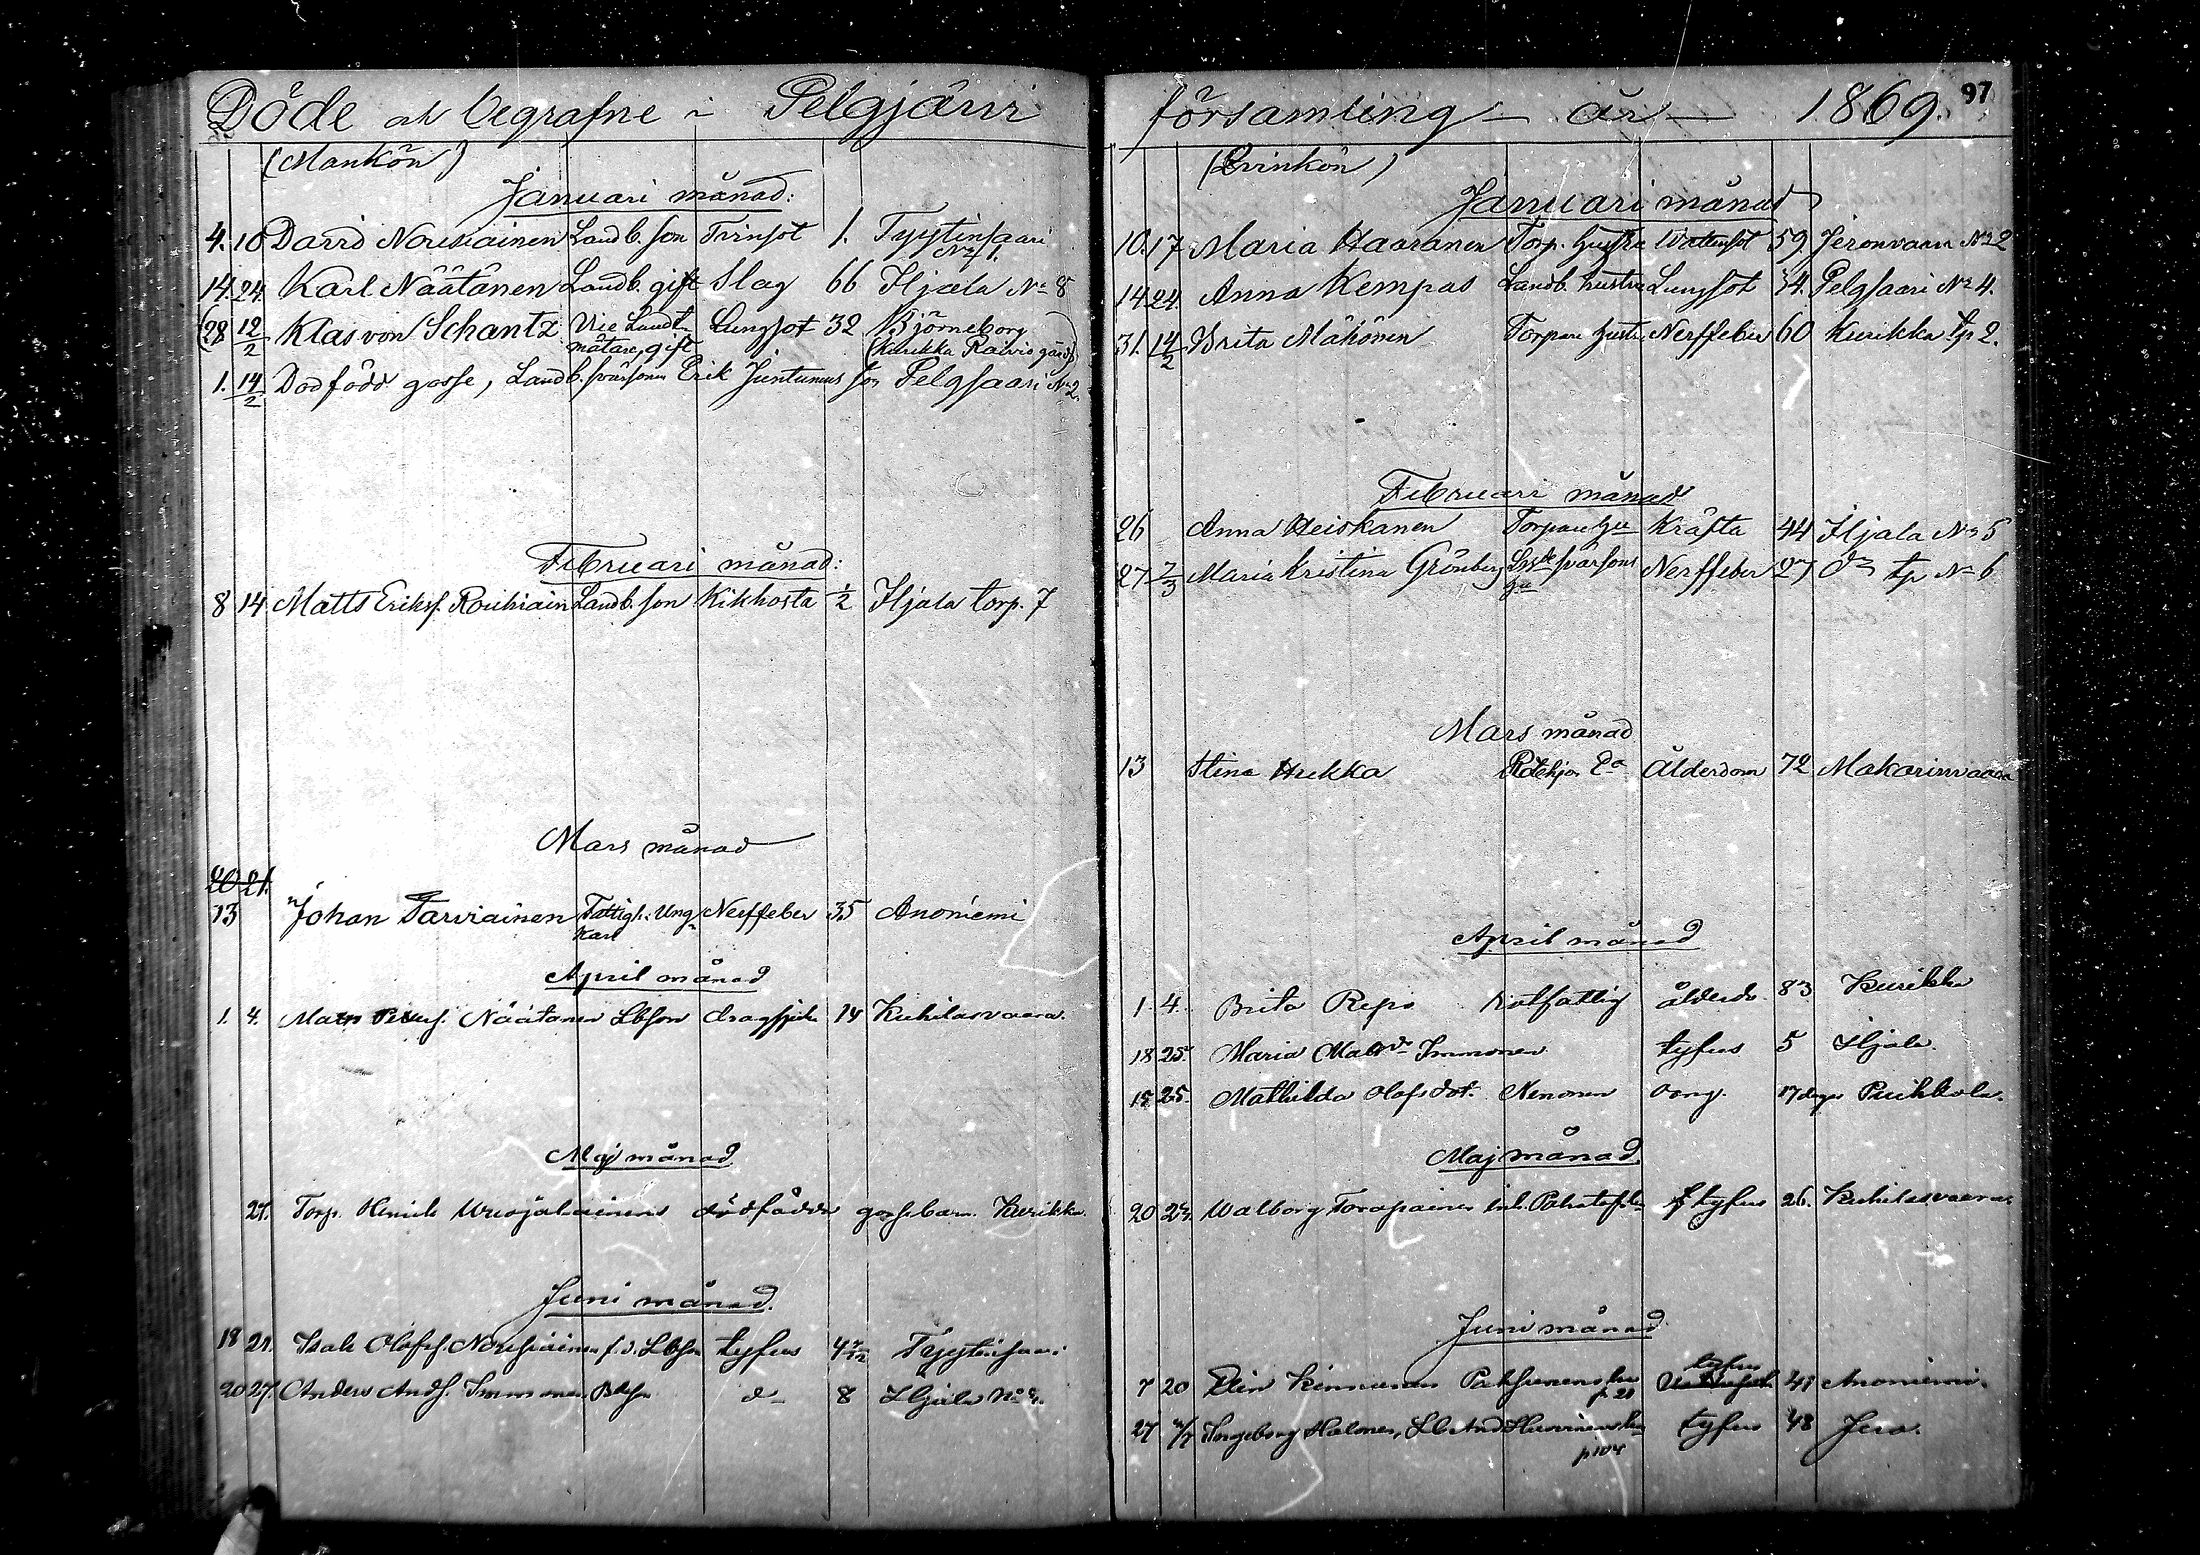 Döde och begrafne i Pelgjärvi
(Mankön)
Januari månad:
4. 10 David Nousiainen Landb. son Tvinsot 1. Tyytinsaari
No 1.
14. 24. Karl Näätänen Landb. gift Slag 66 Iljala No 8
(28 12/2 Klas von Schantz Vice Landt- Lungsot 32 Björneborg
mätare, gift (Kurikka Raivio gård)
1. 14/2 Dödfödd gosse, Landb. svärsonen Erik Juntunens son Pelgsaari No 2.
Februari månad:
8 14 Matts Eriksf. Rouhiain Landb. son Kikhosta 1/2 Iljala torp. 7
Mars månad
20 21.
13 Johan Tarviainen Fattigh. Ung- Nerffeber 35 Anoniemi
Karl
April månad
1. 4. Matts Petersf. Näätänen Lbson dragsjuka 14 Kuhilasvaara.
Maj månad
27. Torp. Henrik Uusjalainens dödfödda gossebarn. Kurikka.
Juni månad.
18 21. Isak Olofsf. Nousiainen f.d. Lbson tyfus 4 Tyytinsaari
20 27. Anders Andsf. Immonen d- 8 Iljala No 4.
församling år 1869. 97
(Qvinkön)
Januari månad
10. 17 Maria Haaranen Torp. hustru Vattusot 59. Jeronvaara No 2
14 24 Anna Kempas Landb. hustru Lungsot 34. Pelgsaari No 4.
31. 14/2 Brita Mähönen Torpare hustr. Nerffeber 60 Kurikka tp 2.
Februari månad
26 Anna Heiskanen Torpare hu Kräfta 44 Iljala No 5
27 7/3 Maria Kristina Grönberg svärsons Nerffeber 27 do tp No 6
hu
Mars månad
13 Stina Hukka Ea Ålderdom 72 Makarinvaara
April månad
1. 4. Brita Repo Rotfattig ålderdr. 83 Kurikka
18 25. Maria Matsdr Immonen tyfus 5 Iljala.
15 25. Mathilda Olofsdot. Nenonen oäng. 17 dagar Puikkola.
Maj månad.
20 23. Walborg Toropainen inh. tyfus 26. Kuhilasvaara.
Juni månad
tyfus
7 20 Elin Kinnunen Pakkunens hu Vattusot 41 Anoniemi.
p 21
27 4/7 Ingeborg Halonen, Lb And hu tyfus 48 Jero.
p 104